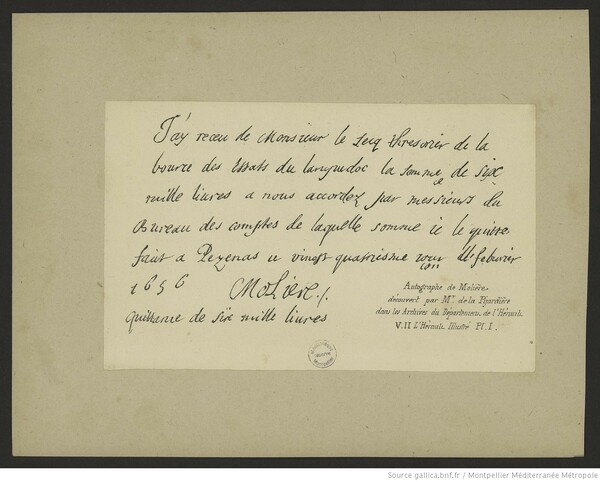 J'ay receu de Monsieur le Secq thresorier de la
bource des Estats du languedoc la somme de six
mille liures a nous accordez par messieurs du
Bureau des comptes de laquelle somme ie le quitte
faict a Pezenas ce vingt quatriesme iour de febvrier
1656 Moliere ./.
quittance de six mille liures
Autographe de Molière.
découvert par Mr. de la Pijardière
dans les Archives du Département de l'Hérault.
V. II L'Hérault Illustré Pl. I.
Source gallica.bnf.fr / Montpellier Méditerranée Métropole